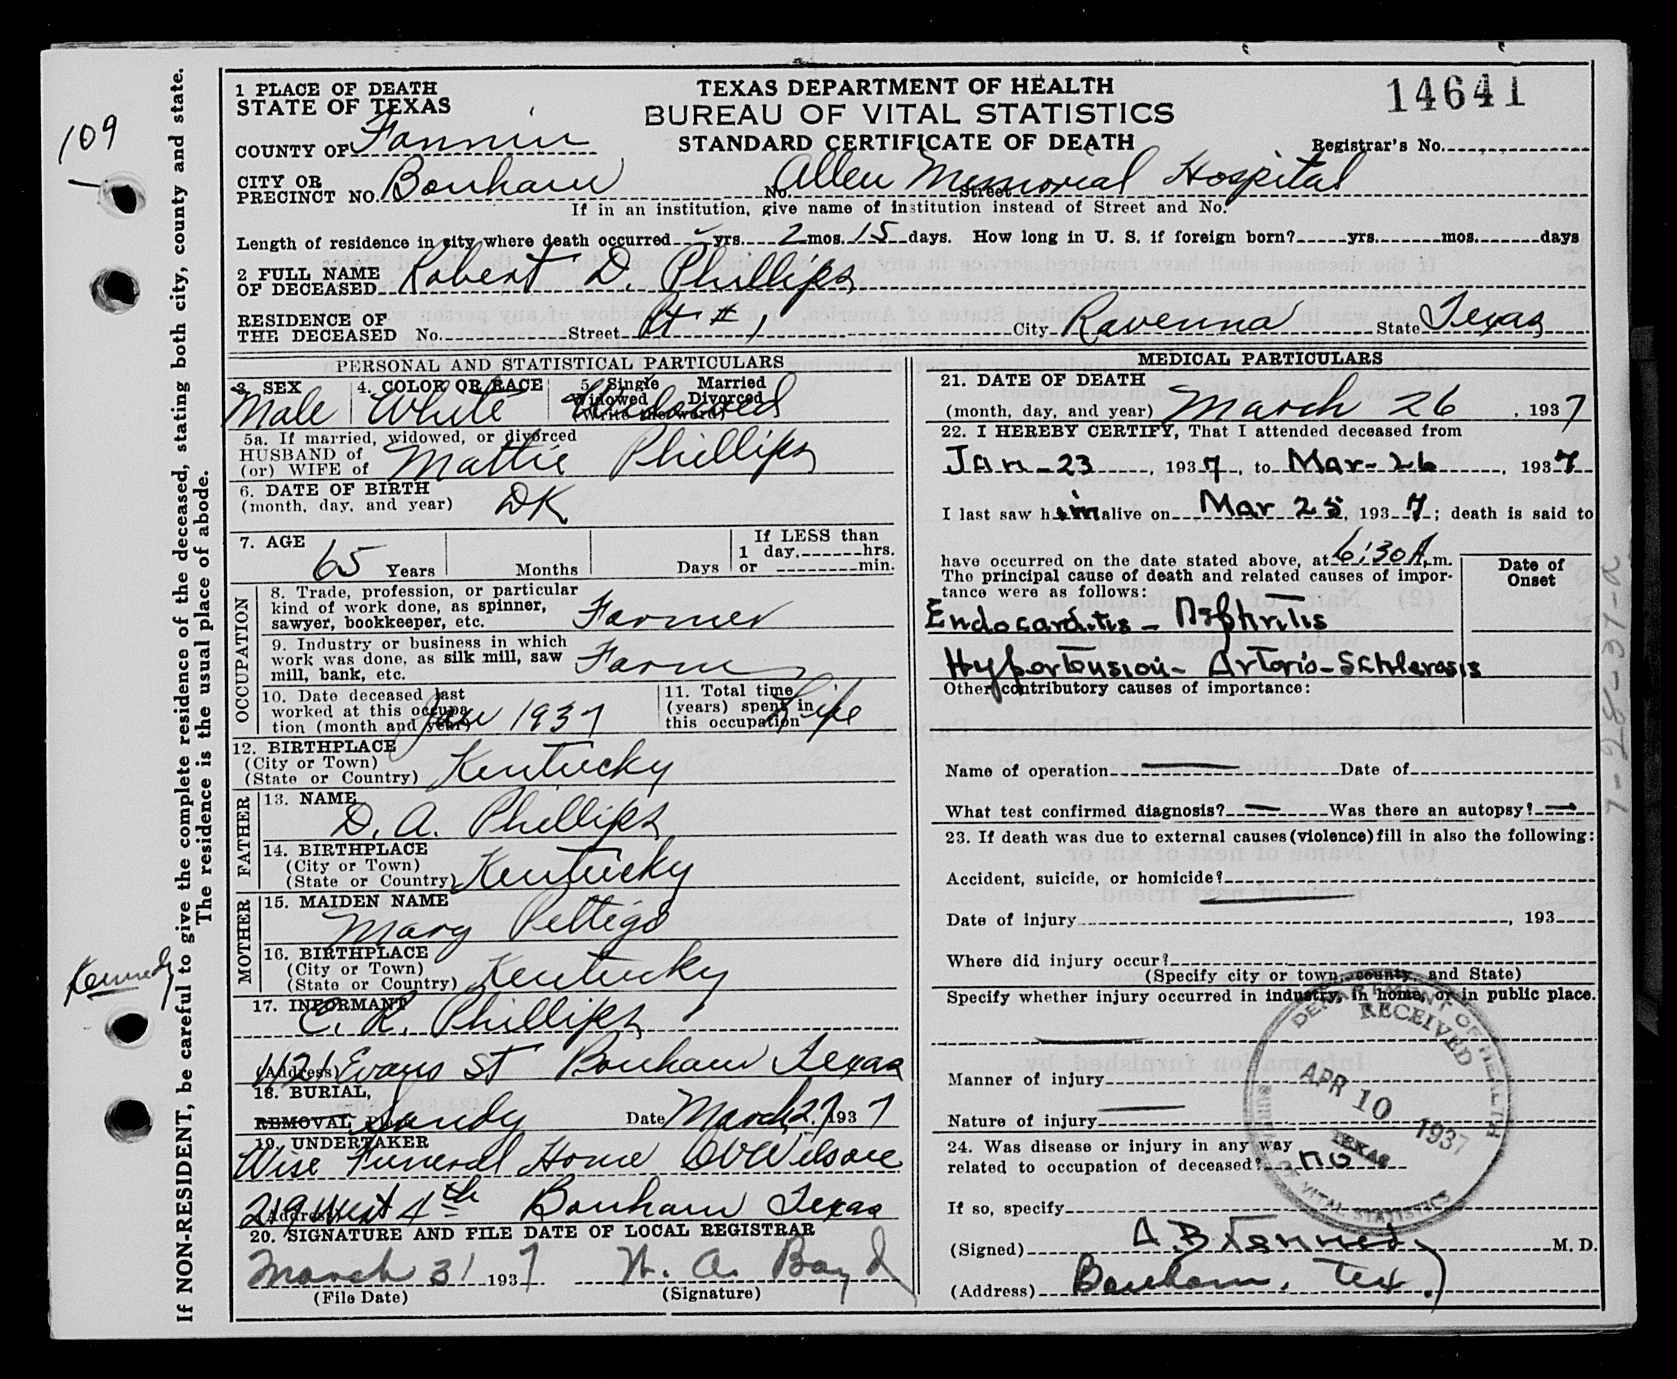 TEXAS DEPARTMENT OF HEALTH
BUREAU OF VITAL STATISTICS
STANDARD CERTIFICATE OF DEATH
14641
109
Registrar's No.
1 PLACE OF DEATH
STATE OF TEXAS
COUNTY OF Fannin
CITY OR PRECINCT NO. Bonham No. Street Allen Memorial Hospital
If in an institution, give name of institution instead of Street and No.
Length of residence in city where death occurred yrs. 2 mos. 15 days. How long in U. S. if foreign born? yrs. mos. days
2 FULL NAME OF DECEASED Robert D. Phillips
RESIDENCE OF THE DECEASED No. Street Rt # 1 City Ravenna State Texas
PERSONAL AND STATISTICAL PARTICULARS
3. SEX Male
4. COLOR OR RACE White
5. Single Married Widowed Divorced (Write the word) Widowed
5a. If married, widowed, or divorced HUSBAND of (or) WIFE of Mattie Phillips
6. DATE OF BIRTH (month, day, and year) DK
7. AGE 65 Years Months Days If LESS than 1 day, hrs. or min.
OCCUPATION
8. Trade, profession, or particular kind of work done, as spinner, sawyer, bookkeeper, etc. Farmer
9. Industry or business in which work was done, as silk mill, saw mill, bank, etc. Farm
10. Date deceased last worked at this occupation (month and year) Jan 1937
11. Total time (years) spent in this occupation Life
12. BIRTHPLACE (City or Town) (State or Country) Kentucky
FATHER
13. NAME D. A. Phillips
14. BIRTHPLACE (City or Town) (State or Country) Kentucky
MOTHER
15. MAIDEN NAME Mary Pettigo
16. BIRTHPLACE (City or Town) (State or Country) Kentucky
17. INFORMANT E. R. Phillips
(Address) 1121 Evans St Bonham Texas
18. BURIAL, REMOVAL Sandy Date March 27 1937
19. UNDERTAKER Wise Funeral Home
(Address) 219 West 4th Bonham Texas
20. SIGNATURE AND FILE DATE OF LOCAL REGISTRAR
March 31 1937 W. A. Boyd
(File Date) (Signature)
MEDICAL PARTICULARS
21. DATE OF DEATH
(month, day, and year) March 26, 1937
22. I HEREBY CERTIFY, That I attended deceased from
Jan-23, 1937, to Mar-26, 1937
I last saw him alive on Mar 25, 1937; death is said to
have occurred on the date stated above, at 6:30 A.m.
The principal cause of death and related causes of importance were as follows:
Date of Onset
Endocarditis - Nephritis
Hypertension - Arterio-Schlerosis
Other contributory causes of importance:
Name of operation Date of
What test confirmed diagnosis? Was there an autopsy?
23. If death was due to external causes (violence) fill in also the following:
Accident, suicide, or homicide?
Date of injury , 193
Where did injury occur?
(Specify city or town, county, and State)
Specify whether injury occurred in industry, in home, or in public place.
Manner of injury
Nature of injury
24. Was disease or injury in any way
related to occupation of deceased? no
If so, specify
(Signed) A. B. Kennedy M. D.
(Address) Bonham, Tex.
DEPARTMENT OF HEALTH
RECEIVED
APR 10 1937
TEXAS
BUREAU OF VITAL STATISTICS
Kennedy
If NON-RESIDENT, be careful to give the complete residence of the deceased, stating both city, county and state.
The residence is the usual place of abode.